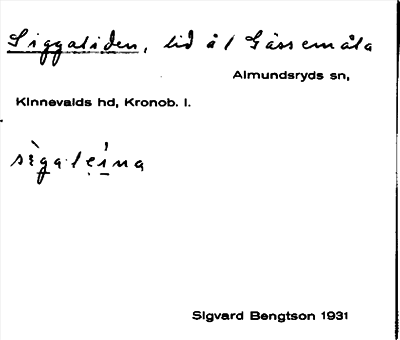 Siggaliden, lid å / Gåssemåla
Almundsryds sn,
Kinnevalds hd, Kronob. l.
Sigvard Bengtson 1931